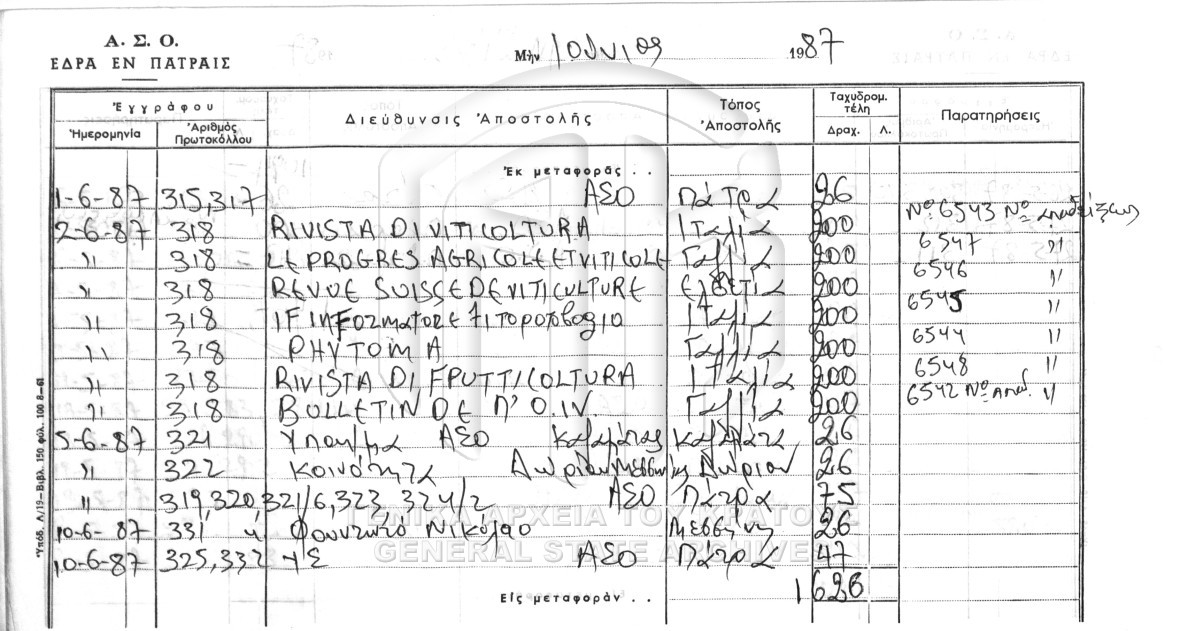 Α. Σ. Ο.
ΕΔΡΑ ΕΝ ΠΑΤΡΑΙΣ
Μὴν Ιούνιος 1987
Ἐγγράφου Διεύθυνσις Ἀποστολῆς Τόπος Ἀποστολῆς Ταχυδρομ. τέλη Παρατηρήσεις
Ἡμερομηνία Ἀριθμὸς Πρωτοκόλλου Δραχ. Λ.
Ἐκ μεταφορᾶς . .
1-6-87 315,317 ΑΣΟ Πάτρα 26
2-6-87 318 RIVISTA DI VITICOLTURA Ιταλία 200 Νο 6543 Νο αποδείξεως
〃 318 = LE PROGRES AGRICOLE ET VITICOLE Γαλλία 200 6547 〃
〃 318 REVUE SUISSE DE VITICULTURE Ελβετία 200 6546 〃
〃 318 Ιταλία 200 6545 〃
〃 318 PHYTOMA Γαλλία 200 6544 〃
〃 318 RIVISTA DI FRUTTICOLTURA Ιταλία 200 6548 〃
〃 318 BULLETIN DE Π' O.I.V. Γαλλία 200 6542 Νο αποδ. 〃
5-6-87 321 Υποκ/μα ΑΣΟ Καλαμάτας Καλαμάτα 26
〃 322 Κοινότητα Δωρίου Μεσσηνίας Δώριον 26
〃 319,320,321/6,323,324/2 ΑΣΟ Πάτρα 75
10-6-87 331 Νικόλαο Μεσσήνη 26
10-6-87 325,332 ΑΣΟ Πάτρα 47
Εἰς μεταφορὰν . . 1626
Ὑπόδ. Λ/19—Βιβλ. 150 φύλ. 100 8-61
ΓΕΝΙΚΑ ΑΡΧΕΙΑ ΤΟΥ ΚΡΑΤΟΥΣ
GENERAL STATE ARCHIVES